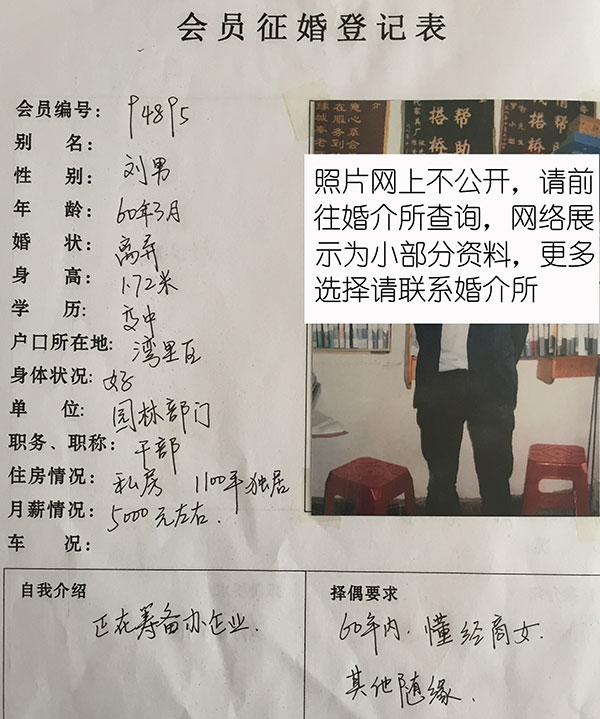 会员征婚登记表
会员编号： 94895
别 名：
性 别： 刘男
年 龄： 60年3月
婚 状： 离异
身 高： 1.72米
学 历： 高中
户口所在地： 湾里区
身体状况： 好
单 位： 园林部门
职务、职称： 干部
住房情况： 私房 1100平独居
月薪情况： 5000元左右.
车 况：
帮助
搭桥
照片网上不公开，请前
往婚介所查询，网络展
示为小部分资料，更多
选择请联系婚介所
自我介绍
正在筹备办企业.
择偶要求
60年内. 懂经商女.
其他随缘.